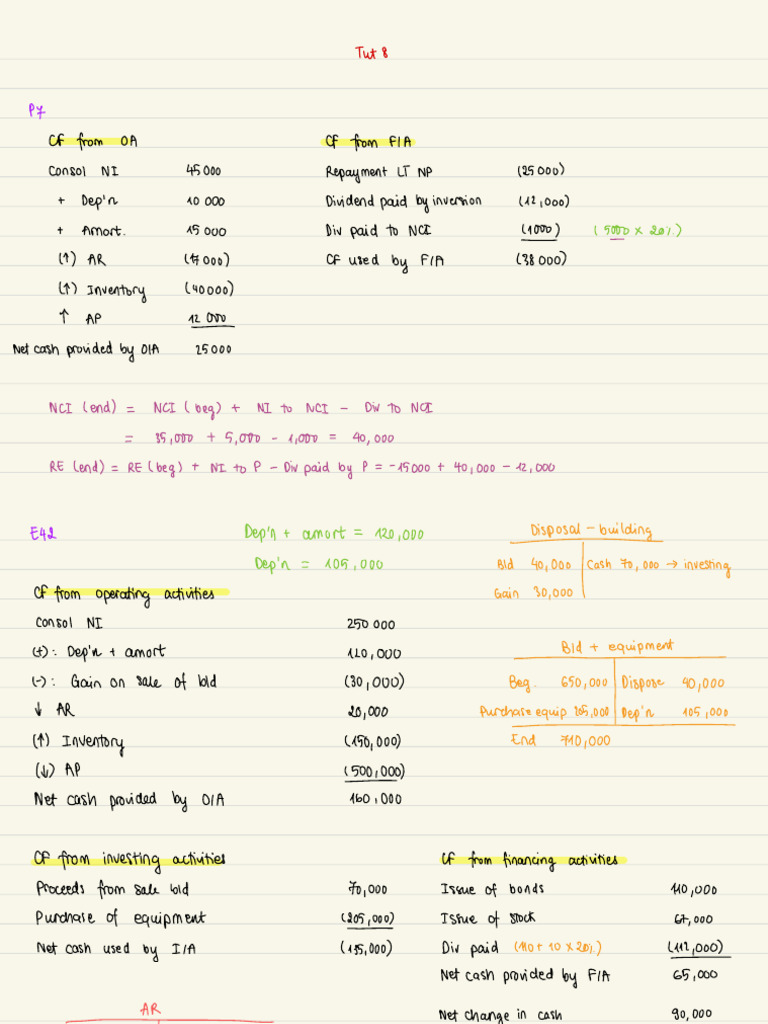 Tut 8
P7
CF from OA
Consol NI 45 000
+ Dep'n 10 000
+ Amort. 15 000
(↑) AR (17 000)
(↑) Inventory (40 000)
↑ AP 12 000
Net cash provided by O/A 25 000
CF from F/A
Repayment LT NP (25 000)
Dividend paid by inversion (12,000)
Div paid to NCI (1000) (5000 x 20%)
CF used by F/A (38 000)
NCI (end) = NCI (beg) + NI to NCI - Div to NCI
= 35,000 + 5,000 - 1,000 = 40,000
RE (end) = RE (beg) + NI to P - Div paid by P = -15000 + 40,000 - 12,000
E42
Dep'n + amort = 120,000
Dep'n = 105,000
Disposal - building
Bld 40,000 Cash 70,000 → investing
Gain 30,000
CF from operating activities
Consol NI 250 000
(+): Dep'n + amort 120,000
(-): Gain on sale of bld (30,000)
↓ AR 20,000
(↑) Inventory (150,000)
(↓) AP (500,000)
Net cash provided by O/A 160,000
Bld + equipment
Beg. 650,000 Dispose 40,000
Purchase equip 205,000 Dep'n 105,000
End 710,000
CF from investing activities
Proceeds from sale bld 70,000
Purchase of equipment (205,000)
Net cash used by I/A (135,000)
CF from financing activities
Issue of bonds 110,000
Issue of stock 67,000
Div paid (110 + 10 x 20%) (112,000)
Net cash provided by F/A 65,000
Net change in cash 90,000
AR